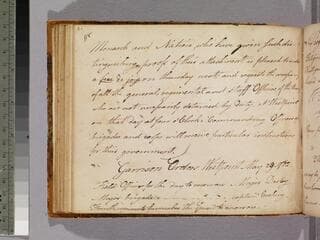 Monarch and Nation who have given such dis-
tinguishing proofs of their attachment is pleased to order
a feu de joy on thursday next and request the company
of all the general regimental and Staff Officers of the Army
who are not necessarily detained by duty, at Westpoint
on that day at four o'Clock. Commanding Officers
brigades and corps will receive particular instructions
for this government
Garrison Orders Westpoint May 29th
Field Officer for the day to morrow Major Darby
Major brigade captain
the Guard tomorrow